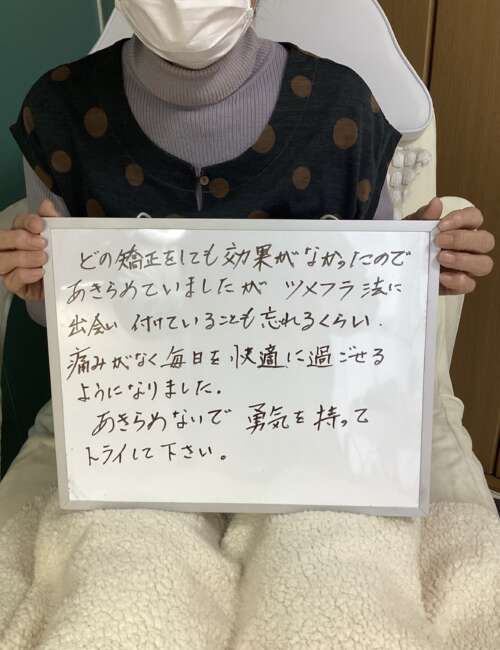 どの矯正をしても効果がなかったので
あきらめていましたが ツメフラ法に
出会い 付けていることも忘れるくらい.
痛みがなく毎日を快適に過ごせる
ようになりました。
あきらめないで 勇気を持って
トライして下さい。